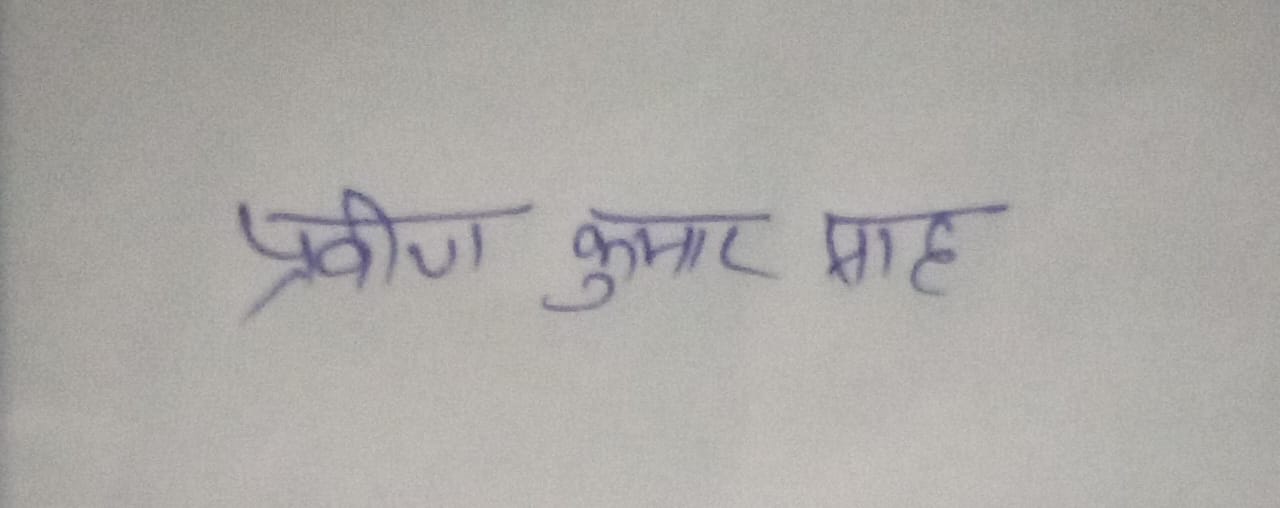 प्रवीण कुमार साह